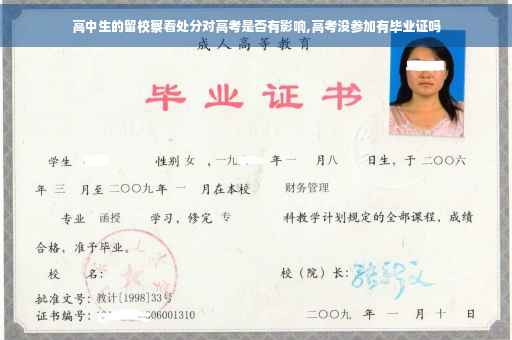 高中生的留校察看处分对高考是否有影响,高考没参加有毕业证吗
成人高等教育
毕业证书
学生 性别 女 ,一九 年 一 月 八 日生,于 二〇〇六
年 三 月至 二〇〇九 年 一 月在本校 财务管理
专业 函授 学习,修完 专 科教学计划规定的全部课程,成绩
合格,准予毕业。
校 名: 校(院)长:
批准文号:教计[1998]33号
证书编号: 06001310 二〇〇九 年 一 月 十 日